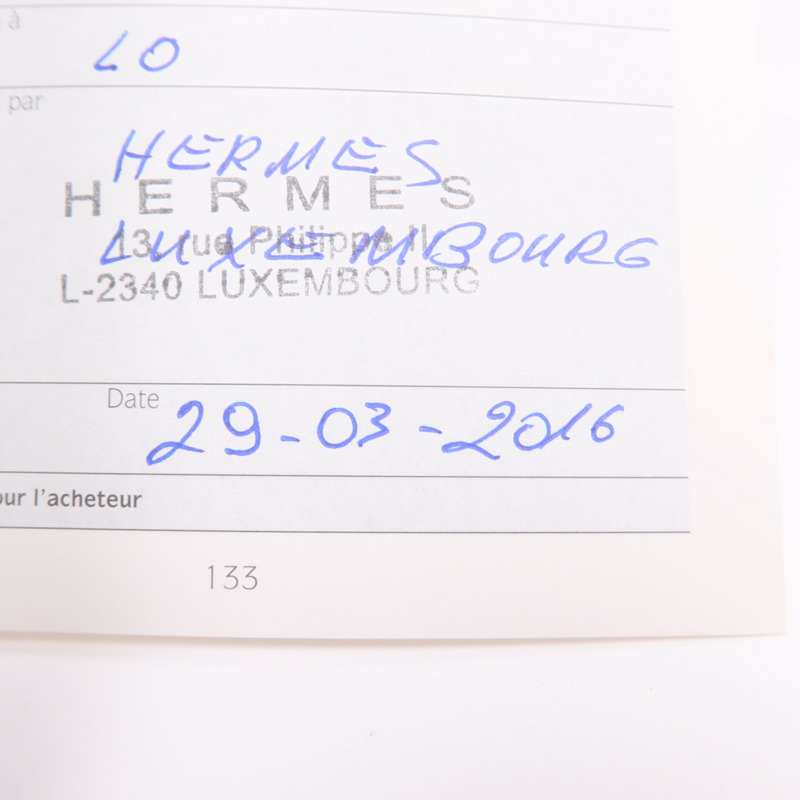 à
LO
par
HERMES
HERMES
LUXEMBOURG
13, rue Philippe II
L-2340 LUXEMBOURG
Date 29-03-2016
our l'acheteur
133